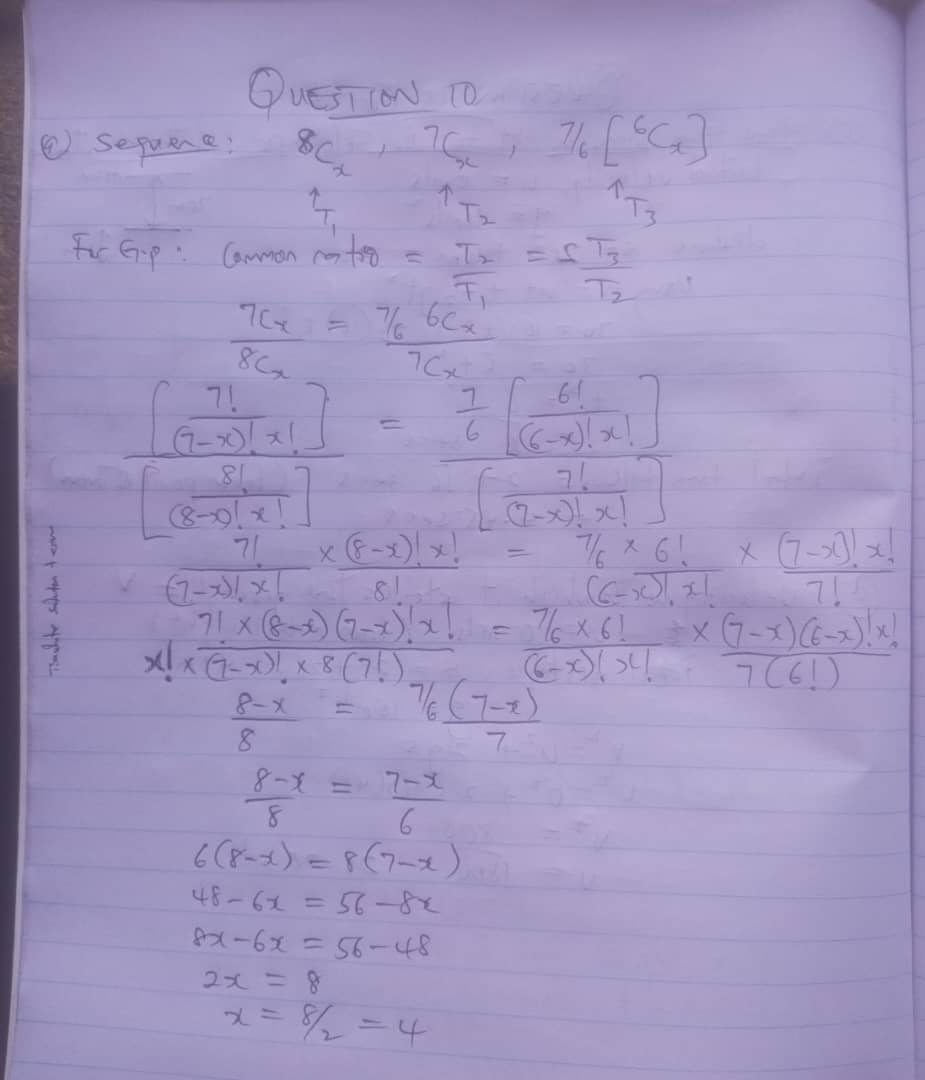 QUESTION 10
a) Sequence: 8Cx , 7Cx , 7/6 [6Cx]
↑T1 ↑T2 ↑T3
For G.p: Common ratio = T2/T1 = T3/T2
7Cx/8Cx = 7/6 6Cx/7Cx
[7!/(7-x)! x!]/[8!/(8-x)! x!] = 7/6 [6!/(6-x)! x!]/[7!/(7-x)! x!]
7!/(7-x)! x! × (8-x)! x!/8! = 7/6 × 6!/(6-x)! x! × (7-x)! x!/7!
7! × (8-x)(7-x)! x!/x! × (7-x)! × 8(7!) = 7/6 × 6!/(6-x)! x! × (7-x)(6-x)! x!/7(6!)
8-x/8 = 7/6(7-x)/7
8-x/8 = 7-x/6
6(8-x) = 8(7-x)
48-6x = 56-8x
8x-6x = 56-48
2x = 8
x = 8/2 = 4